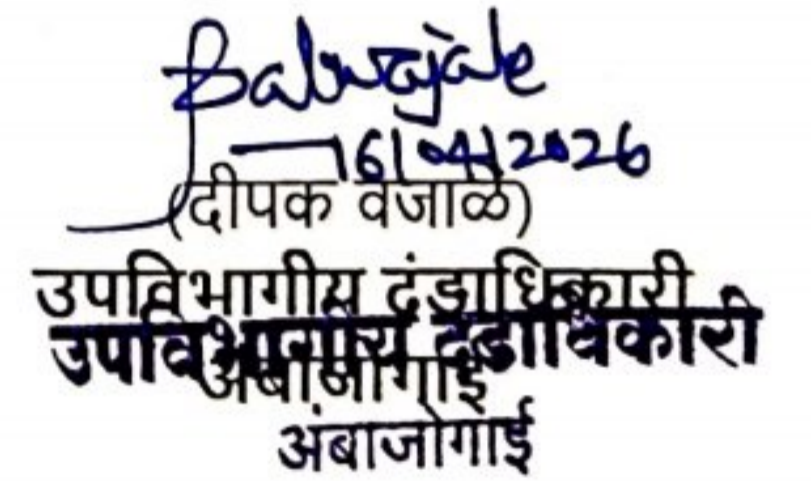 16/04/2026
(दीपक वजाळे)
उपविभागीय दंडाधिकारी
उपविभागीय दंडाधिकारी
अंबाजोगाई
अंबाजोगाई